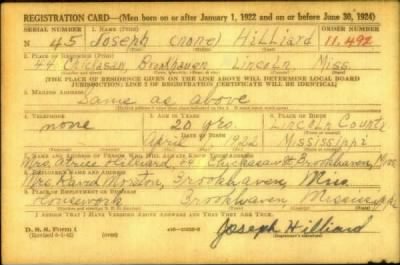 REGISTRATION CARD—(Men born on or after January 1, 1922 and on or before June 30, 1924)
SERIAL NUMBER 1. NAME (Print) ORDER NUMBER
N 45 Joseph (none) Hilliard 11,492
2. PLACE OF RESIDENCE (Print)
44 Chickasaw Brookhaven Lincoln Miss.
[THE PLACE OF RESIDENCE GIVEN ON THE LINE ABOVE WILL DETERMINE LOCAL BOARD
JURISDICTION; LINE 2 OF REGISTRATION CERTIFICATE WILL BE IDENTICAL]
3. MAILING ADDRESS
Same as above
4. TELEPHONE 5. AGE IN YEARS 6. PLACE OF BIRTH
none 20 yrs Lincoln County
DATE OF BIRTH
April 1922 Mississippi
7. NAME AND ADDRESS OF PERSON WHO WILL ALWAYS KNOW YOUR ADDRESS
Mrs. Hilliard, Chickasaw St Brookhaven, Miss
8. EMPLOYER'S NAME AND ADDRESS
Mrs. David Moreton, Brookhaven, Miss.
9. PLACE OF EMPLOYMENT OR BUSINESS
Housework Brookhaven Mississippi
I AFFIRM THAT I HAVE VERIFIED ABOVE ANSWERS AND THAT THEY ARE TRUE.
D. S. S. Form 1
(over) Joseph Hilliard